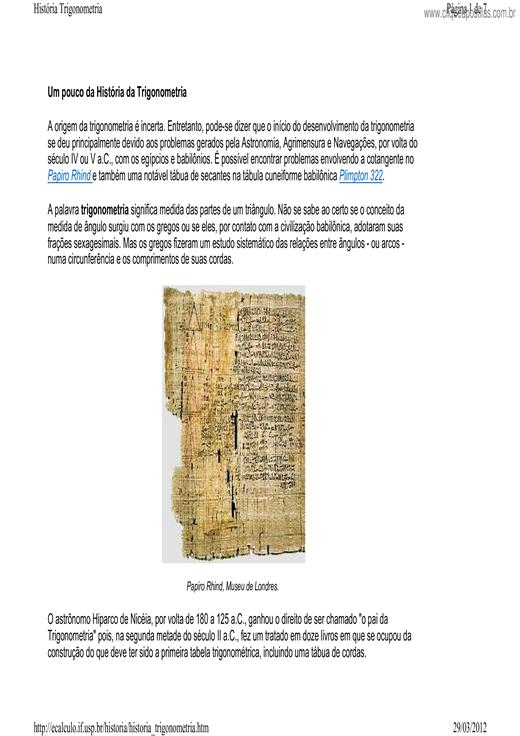 História Trigonometria
Página 1 de 7
www.cliqueapostilas.com.br
Um pouco da História da Trigonometria
A origem da trigonometria é incerta. Entretanto, pode-se dizer que o início do desenvolvimento da trigonometria
se deu principalmente devido aos problemas gerados pela Astronomia, Agrimensura e Navegações, por volta do
século IV ou V a.C., com os egípcios e babilônios. É possível encontrar problemas envolvendo a cotangente no
Papiro Rhind e também uma notável tábua de secantes na tábula cuneiforme babilônica Plimpton 322.
A palavra trigonometria significa medida das partes de um triângulo. Não se sabe ao certo se o conceito da
medida de ângulo surgiu com os gregos ou se eles, por contato com a civilização babilônica, adotaram suas
frações sexagesimais. Mas os gregos fizeram um estudo sistemático das relações entre ângulos - ou arcos -
numa circunferência e os comprimentos de suas cordas.
Papiro Rhind, Museu de Londres.
O astrônomo Hiparco de Nicéia, por volta de 180 a 125 a.C., ganhou o direito de ser chamado "o pai da
Trigonometria" pois, na segunda metade do século II a.C., fez um tratado em doze livros em que se ocupou da
construção do que deve ter sido a primeira tabela trigonométrica, incluindo uma tábua de cordas.
http://ecalculo.if.usp.br/historia/historia_trigonometria.htm
29/03/2012